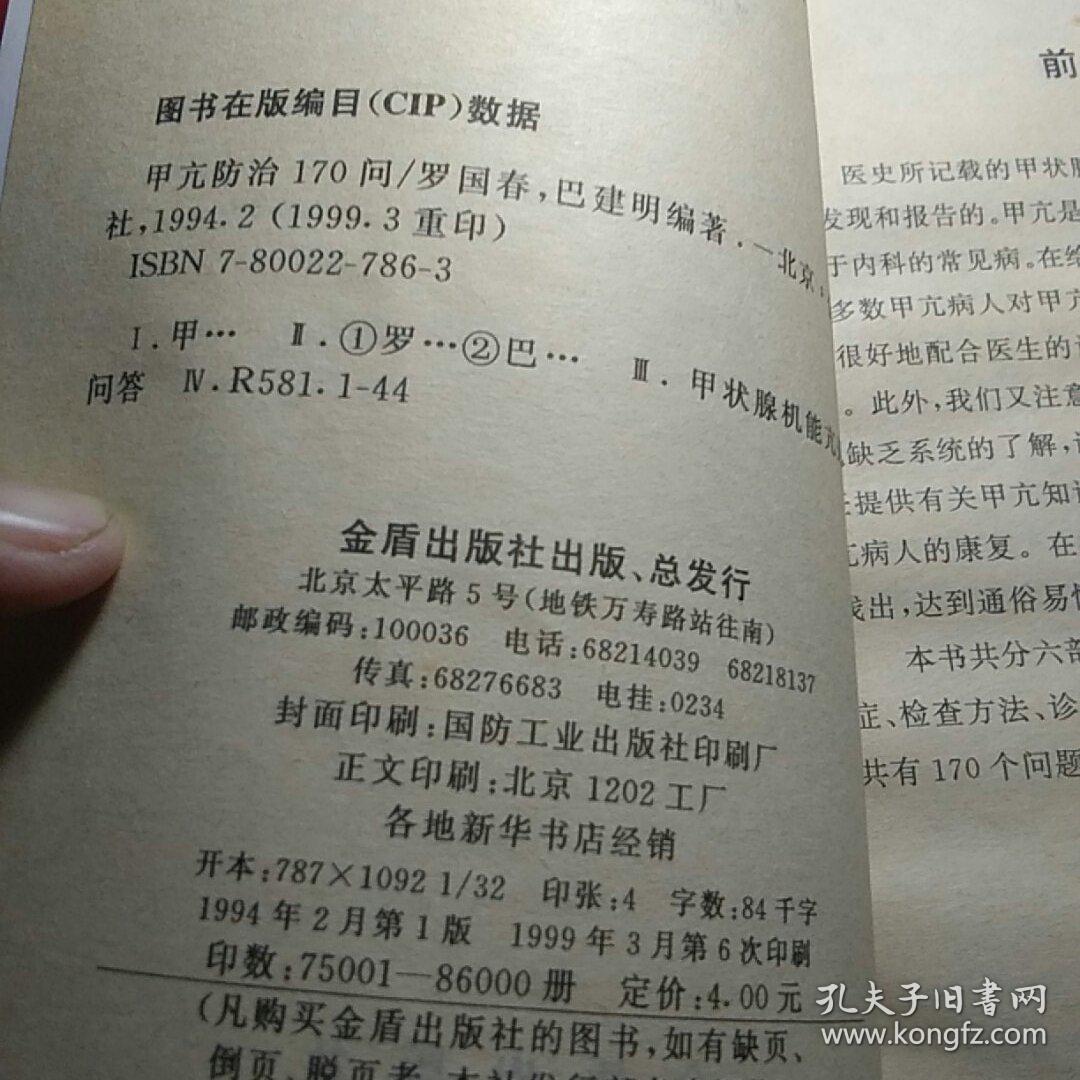 图书在版编目(CIP)数据
甲亢防治 170 问/罗国春,巴建明编著.—北京:
社,1994.2 (1999.3 重印)
ISBN 7-80022-786-3
Ⅰ.甲… Ⅱ.①罗…②巴… Ⅲ.甲状腺机能亢
问答 Ⅳ.R581.1-44
金盾出版社出版、总发行
北京太平路 5 号(地铁万寿路站往南)
邮政编码:100036 电话:68214039 68218137
传真:68276683 电挂:0234
封面印刷:国防工业出版社印刷厂
正文印刷:北京 1202 工厂
各地新华书店经销
开本:787×1092 1/32 印张:4 字数:84 千字
1994 年 2 月第 1 版 1999 年 3 月第 6 次印刷
印数:75001—86000 册 定价:4.00 元
(凡购买金盾出版社的图书,如有缺页、
倒页、脱页者,本社发行部
前
医史所记载的甲状腺
发现和报告的。甲亢是
于内科的常见病。在给
多数甲亢病人对甲亢
很好地配合医生的
。此外,我们又注意
缺乏系统的了解,
提供有关甲亢知识
亢病人的康复。在
浅出,达到通俗易懂
本书共分六部
症、检查方法、诊
共有 170 个问题
孔夫子旧书网
www.kongfz.com